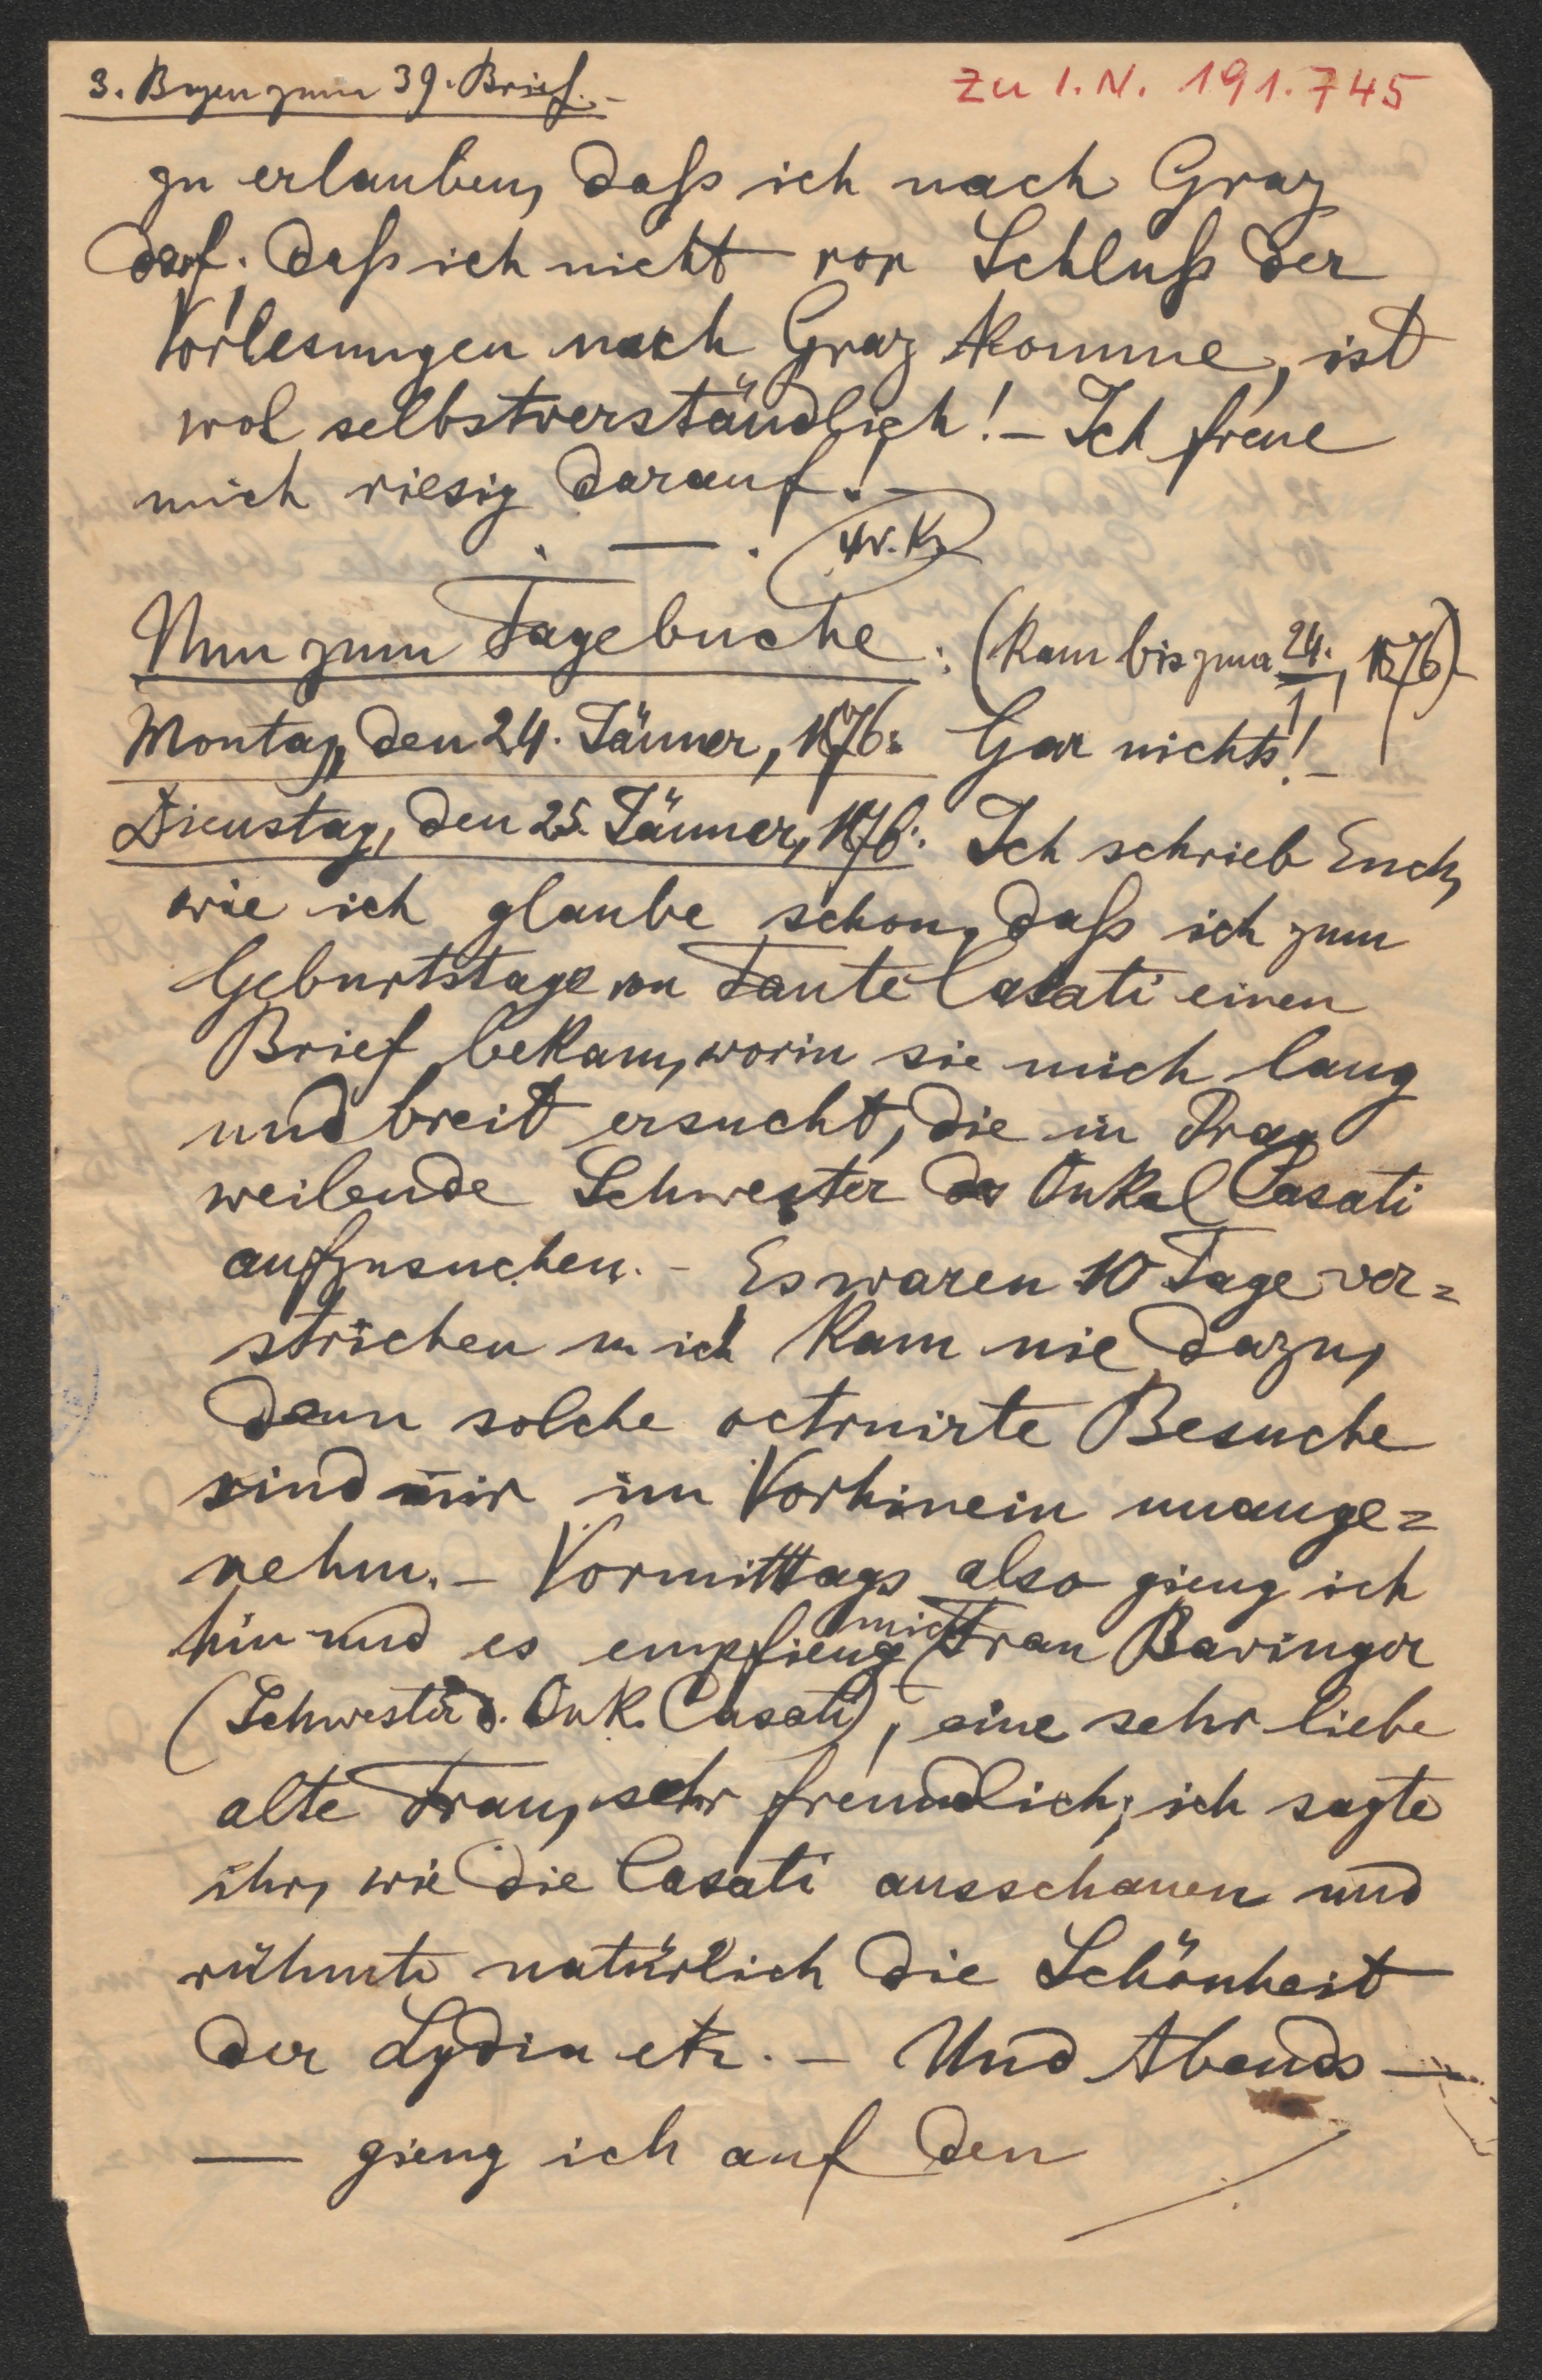 3. Bogen zum 39. Brief.–
zu I. N. 191.745
zu erlauben, daß ich nach Graz
darf; daß ich nicht vor Schluß der
Vorlesungen nach Graz komme, ist
wol selbstverständlich! – Ich freue
mich riesig darauf! –
. — .
Nun zum Tagebuche: (kam bis zum 24./1, 1876)–
Montag, den 24. Jänner, 1876: Gar nichts! –
Dienstag, den 25. Jänner, 1876: Ich schrieb Euch,
wie ich glaube schon, daß ich zum
Geburtstage von Tante Casati einen
Brief bekam, worin sie mich lang
und breit ersucht, die in Prag
weilende Schwester des Onkel Casati
aufzusuchen. – Es waren 10 Tage ver=
strichen u. ich kam nie dazu,
denn solche octruirte Besuche
sind mir im Vorhinein unange=
nehm. – Vormittags also gieng ich
hin und es empfieng mich Frau Baringer
(Schwester d. Onk. Casati), eine sehr liebe
alte Frau, sehr freundlich; ich sagte
ihr, wie die Casati ausschauen und
rühmte natürlich die Schönheit
der Lydia etc. – Und Abends —
— gieng ich auf den